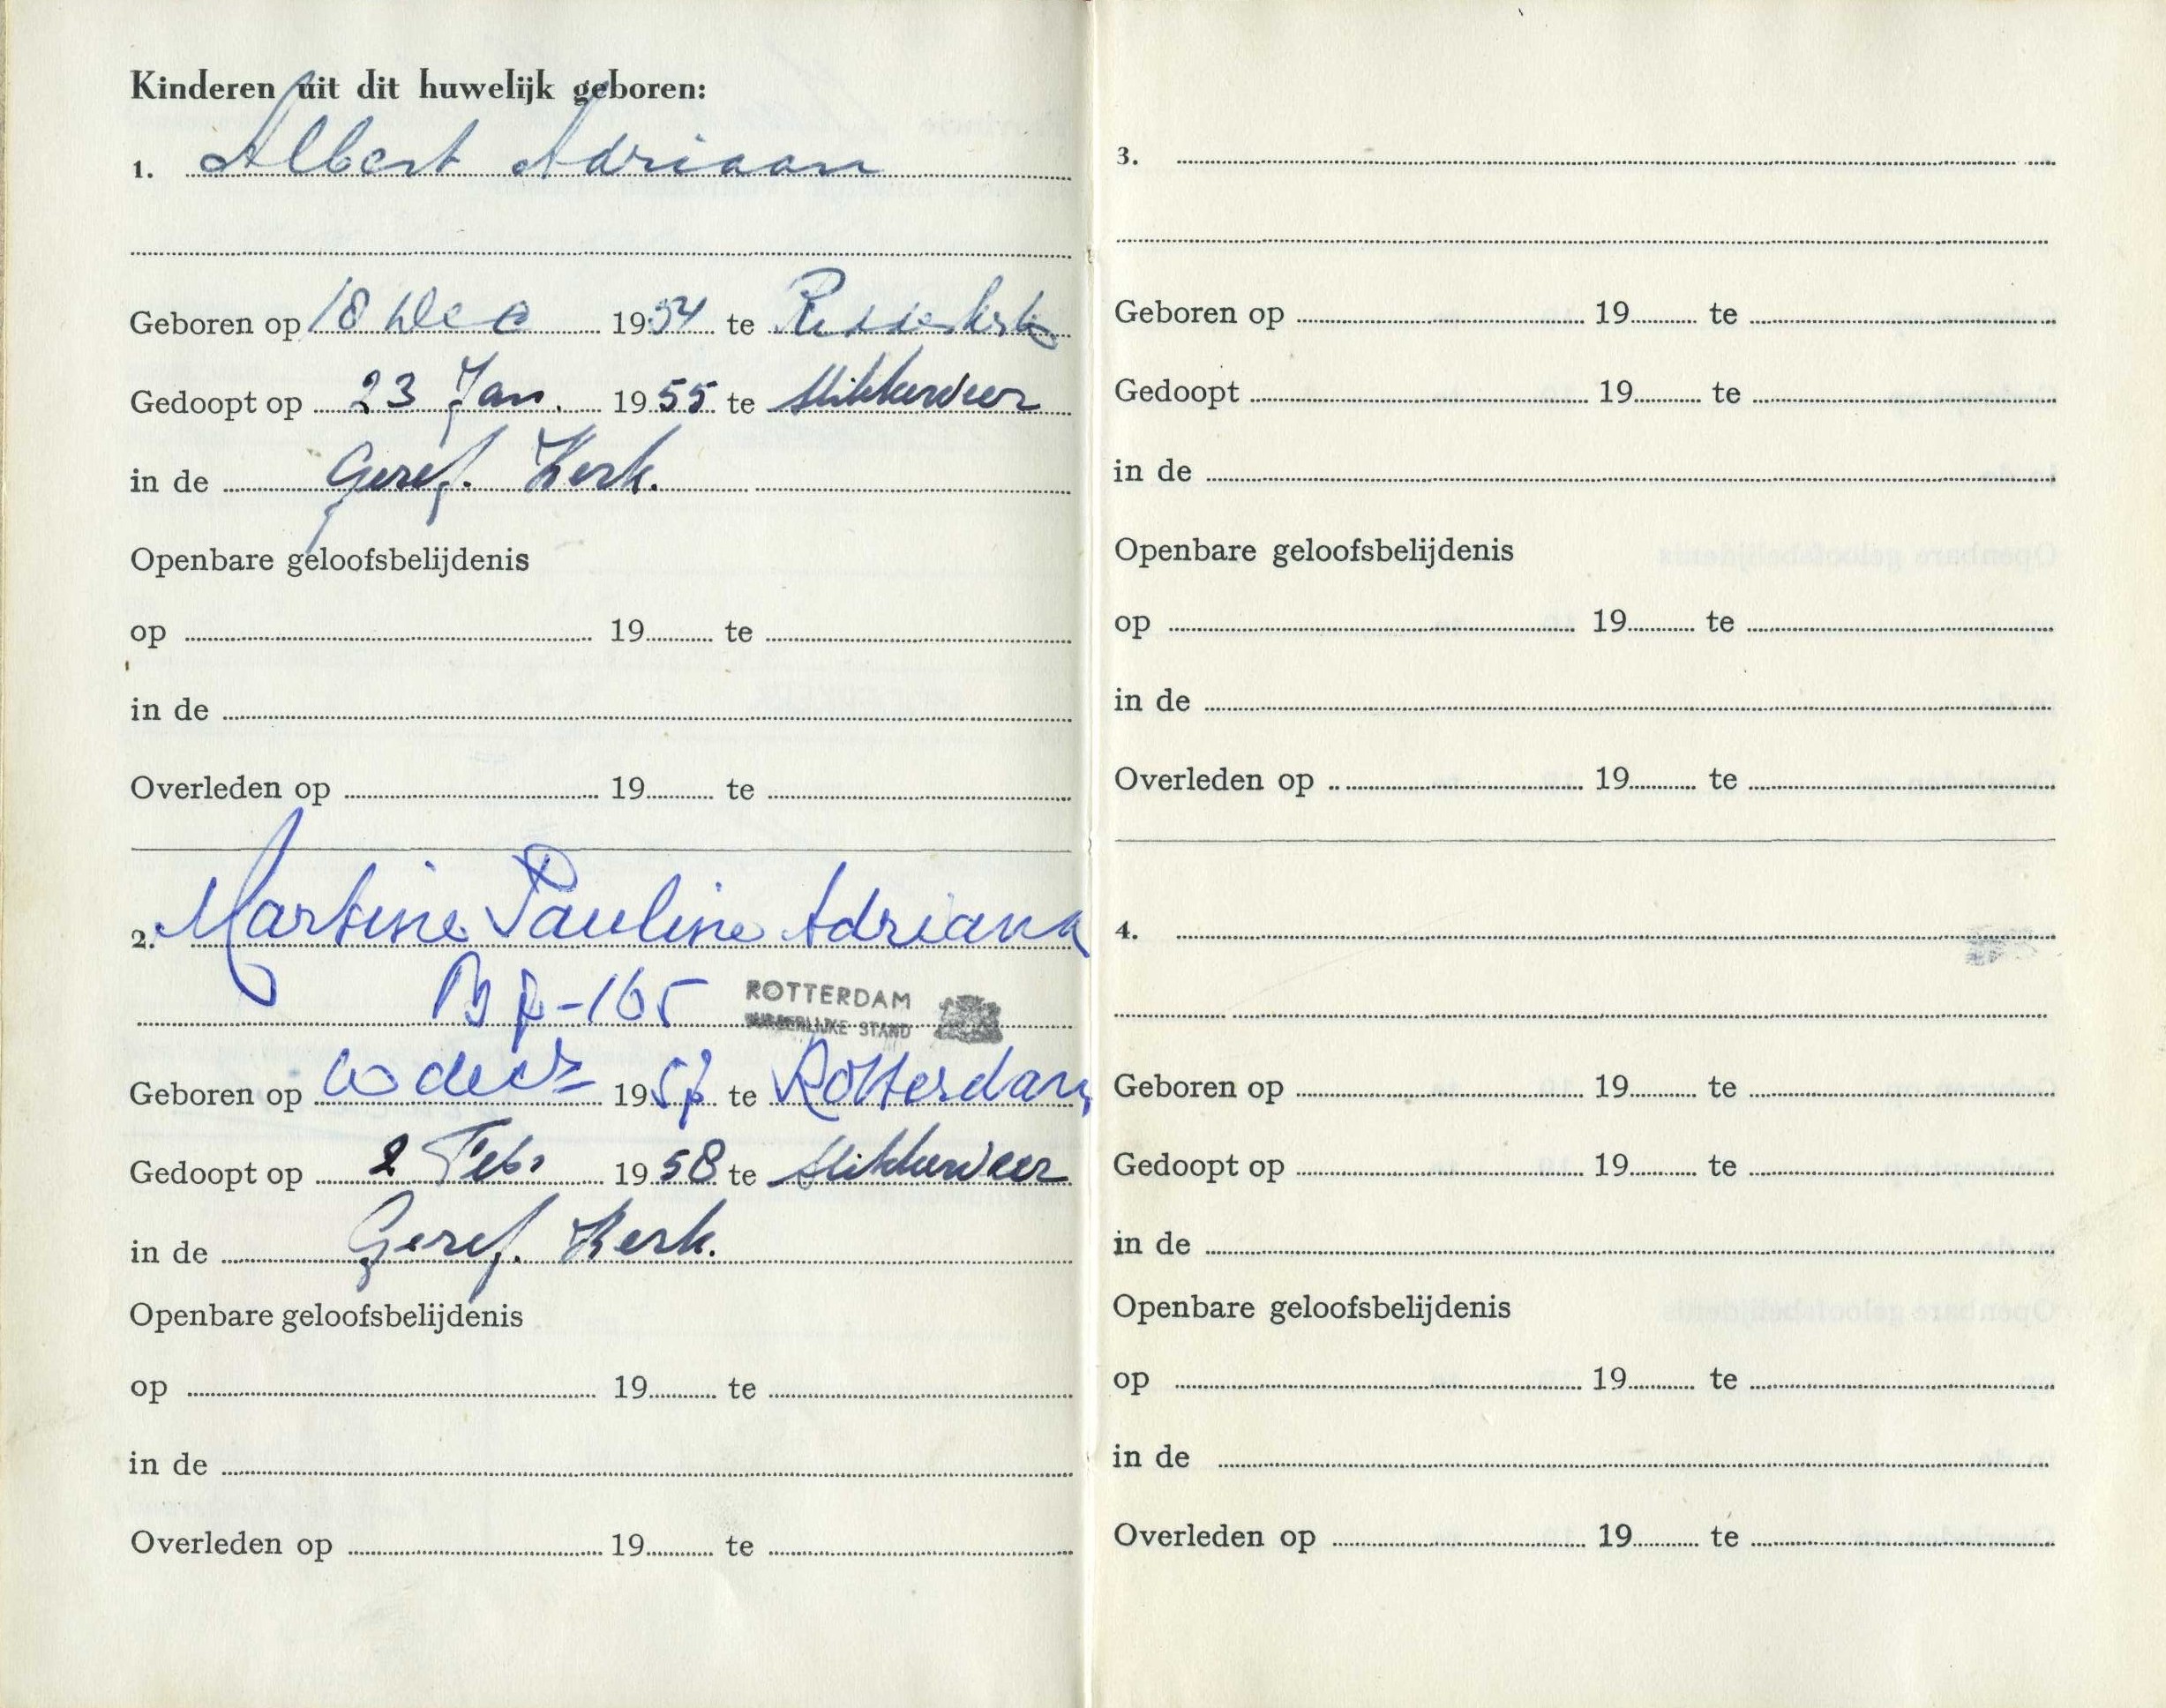 Kinderen uit dit huwelijk geboren:
1. Albert Adriaan
Geboren op 18 Dec 1954 te Ridderkerk
Gedoopt op 23 Jan. 1955 te Slikkerveer
in de Geref. Kerk.
Openbare geloofsbelijdenis
op 19 te
in de
Overleden op 19 te
2. Martine Pauline Adriana
165 ROTTERDAM
BURGERLIJKE STAND
Geboren op 1957 te Rotterdam
Gedoopt op 2 Febr 1958 te Slikkerveer
in de Geref. Kerk.
Openbare geloofsbelijdenis
op 19 te
in de
Overleden op 19 te
3.
Geboren op 19 te
Gedoopt 19 te
in de
Openbare geloofsbelijdenis
op 19 te
in de
Overleden op 19 te
4.
Geboren op 19 te
Gedoopt op 19 te
in de
Openbare geloofsbelijdenis
op 19 te
in de
Overleden op 19 te